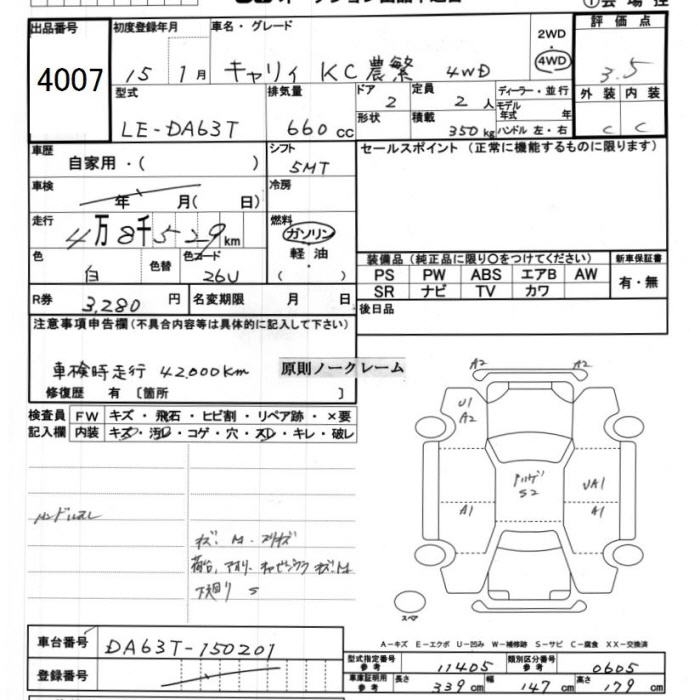 出品番号
4007
初度登録年月
15 1月
車名・グレード
キャリィ KC農繁 4WD
2WD
4WD
評価点
3.5
型式
LE-DA63T
排気量
660 cc
ドア
2
定員
2 人
ディーラー・並行
モデル
年式 年
外装
内装
C
C
形状
積載
350 kg
ハンドル 左・右
車歴
自家用・( )
シフト
5MT
セールスポイント (正常に機能するものに限ります)
車検
年 月( 日)
冷房
走行
4万8千529km
燃料
ガソリン
軽油
( )
色
白
色替
色コード
26U
装備品 (純正品に限り○をつけてください)
新車保証書
PS PW ABS エアB AW
有・無
SR ナビ TV カワ
R券
3,280 円
名変期限 月 日
後日品
注意事項申告欄(不具合内容等は具体的に記入して下さい)
車検時走行 42,000km
原則ノークレーム
修復歴 有 〔箇所 〕
検査員
記入欄
FW キズ・飛石・ヒビ割・リペア跡・×要
内装 キズ・汚レ・コゲ・穴・スレ・キレ・破レ
A2
A2
U1
A2
S2
UA1
A1
A1
ハンドルスレ
下廻り S
スペア
車台番号
DA63T-150201
登録番号
A-キズ E-エクボ U-凹み W-補修跡 S-サビ C-腐食 XX-交換済
型式指定番号
参考
11405
類別区分番号
参考
0605
車庫証明用
参考
長さ 339 cm
幅 147 cm
高さ 179 cm